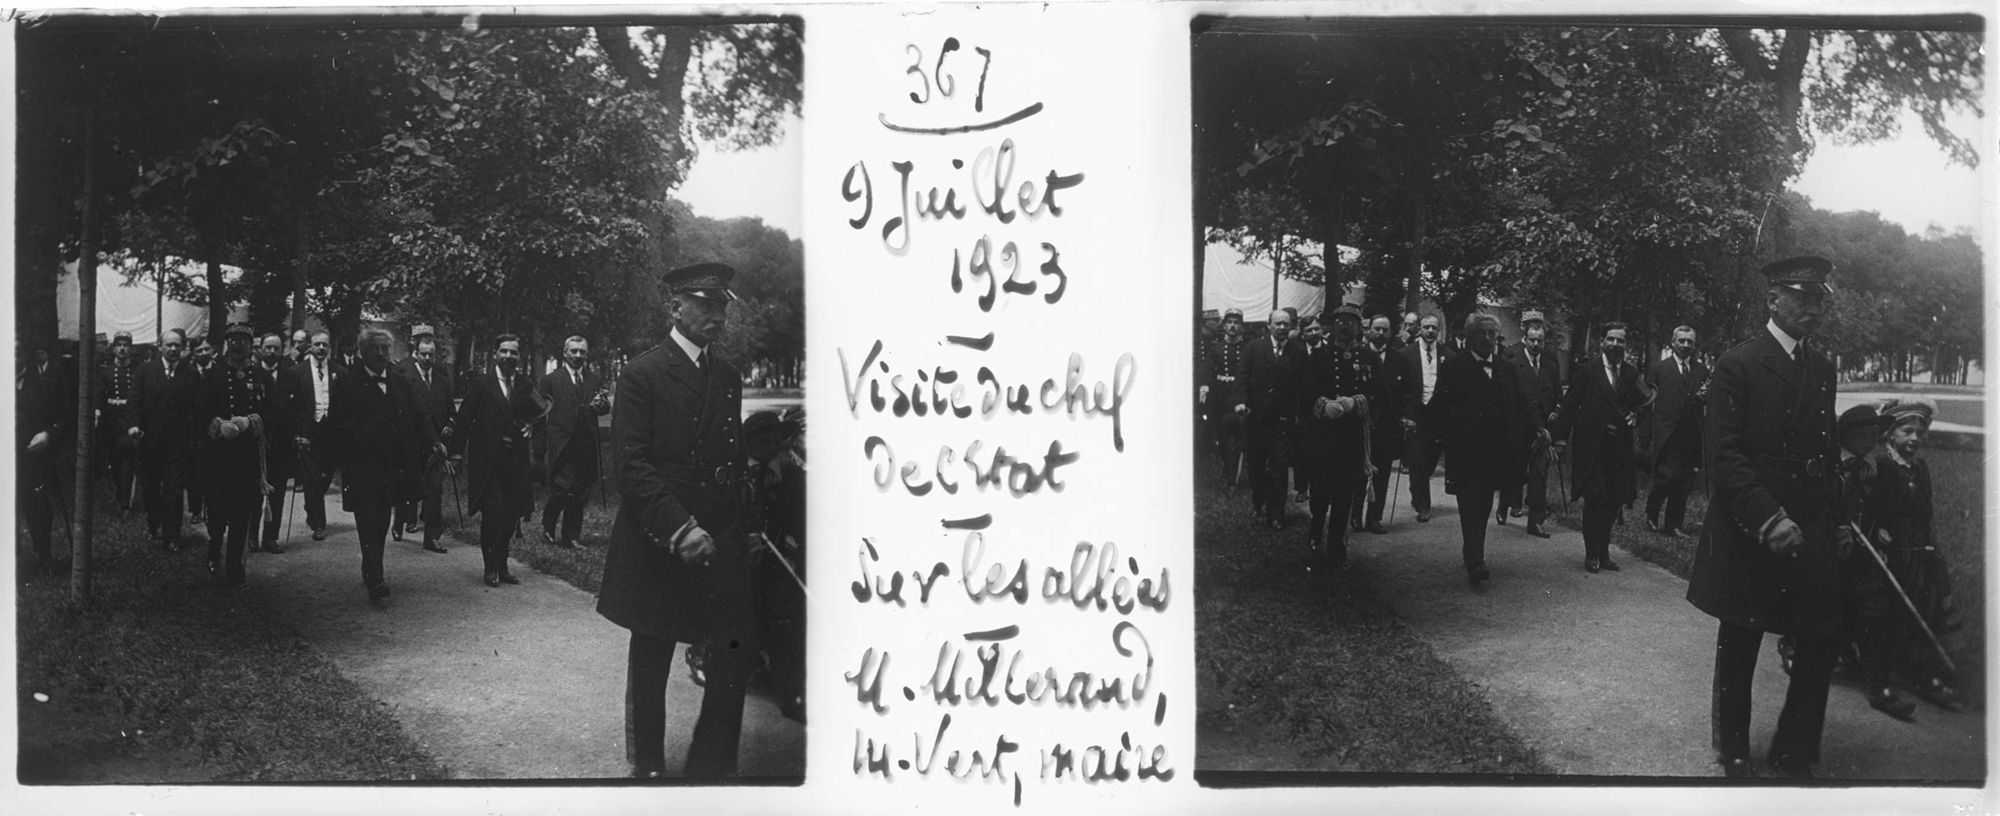 367
9 Juillet
1923
Visite du chef
De l'Etat
Sur les allées
M. Millerand,
M. Vert, maire